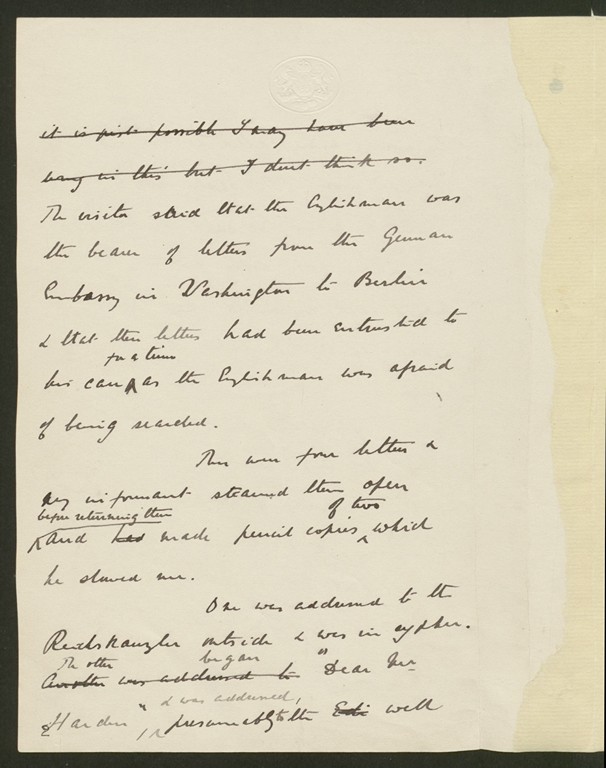 it is just possible I may have been
wrong in this but I don't think so.
The visitor said that the Englishman was
the bearer of letters from the German
Embassy in Washington to Berlin
& that these letters had been entrusted to
for a time
his care as the Englishman was afraid
of being searched.
There were four letters &
my informant steamed them open
before returning them
of two
and had made pencil copies which
he showed me.
One was addressed to the
Reichskanzler outside & was in cypher.
The other began
Another was addressed to "Dear Mr
& was addressed,
Harden" presumably to the Edi well